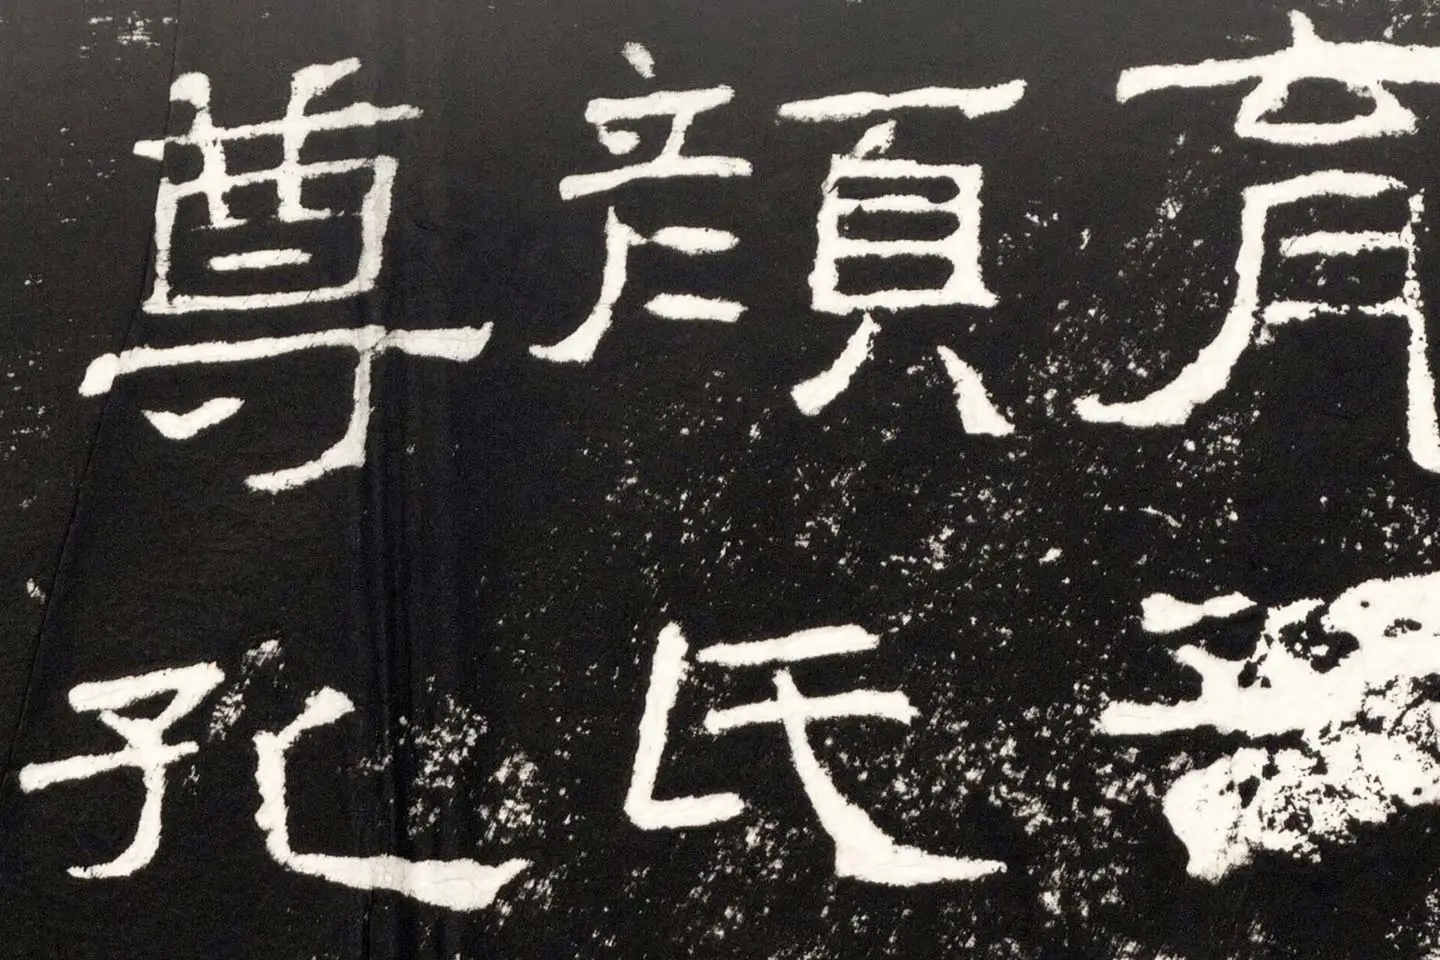 育
顏氏
尊孔